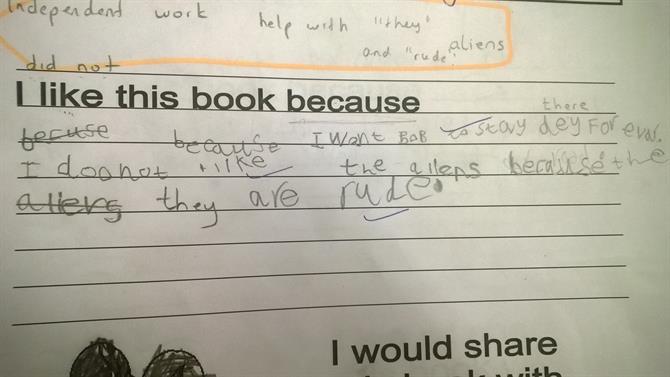 Independent work help with "they"
and "rude" aliens
did not
I like this book because
there
becuse because I want BOB to stay dey For evar.
I doo not like the aliens because the
aliens they are rude.
I would share